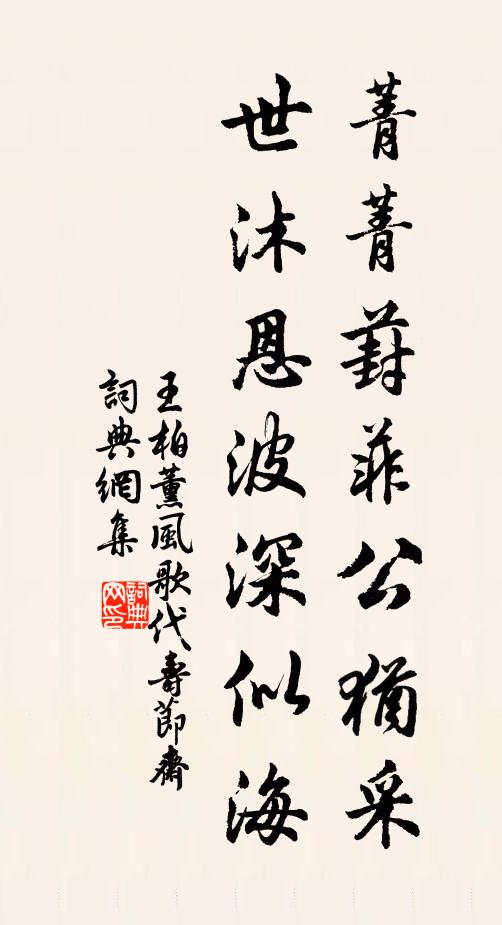 菁菁葑菲公猶采
世沐恩波深似海
王柏薰風歌代壽節齋
詞典網集
詞典网印